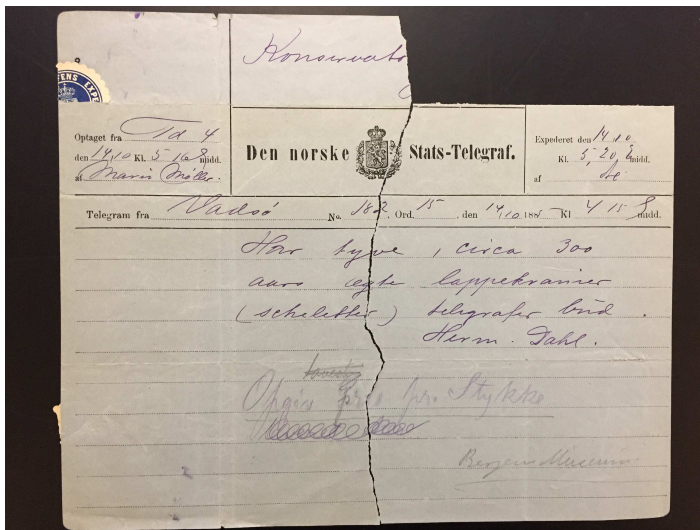 Konservato
FENS EXPE
Optaget fra Td 4
den 14/10 Kl. 5 16 E midd.
af Maris Møller.
Den norske Stats-Telegraf.
Expederet den 14/10
Kl. 5,20 E midd.
af
Telegram fra Vadsø No. 182 Ord. 15 den 14/10 188 Kl 4 15 E midd.
Har tyve, circa 300
aars ægte lappekranier
(scheletter) telegrafer bud.
Herm. Dahl.
Opgiv pris pr. Stykke
Bergens Museum